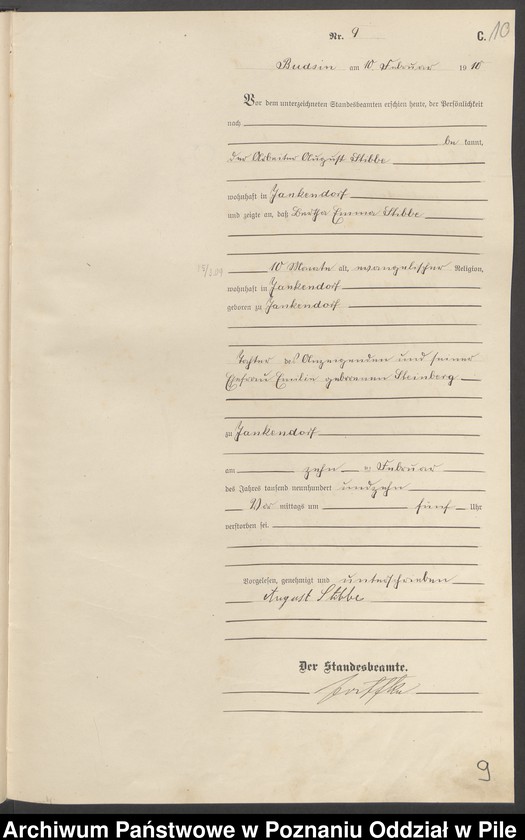 Nr. 9
C. 10
Budsin am 10. Februar 1910
Vor dem unterzeichneten Standesbeamten erschien heute, der Persönlichkeit
nach
be kannt,
der Arbeiter August Stibbe
wohnhaft in Jankendorf
und zeigte an, daß Bertha Emma Stibbe
10 Monate alt, evangelischer Religion,
wohnhaft in Jankendorf
geboren zu Jankendorf
Tochter des Anzeigenden und seiner
Ehefrau Emilie geborenen Steinberg
zu Jankendorf
am zehn ten Februar
des Jahres tausend neunhundert undzehn
Vor mittags um fünf Uhr
verstorben sei.
Vorgelesen, genehmigt und unterschrieben
August Stibbe
Der Standesbeamte.
9
Archiwum Państwowe w Poznaniu Oddział w Pile